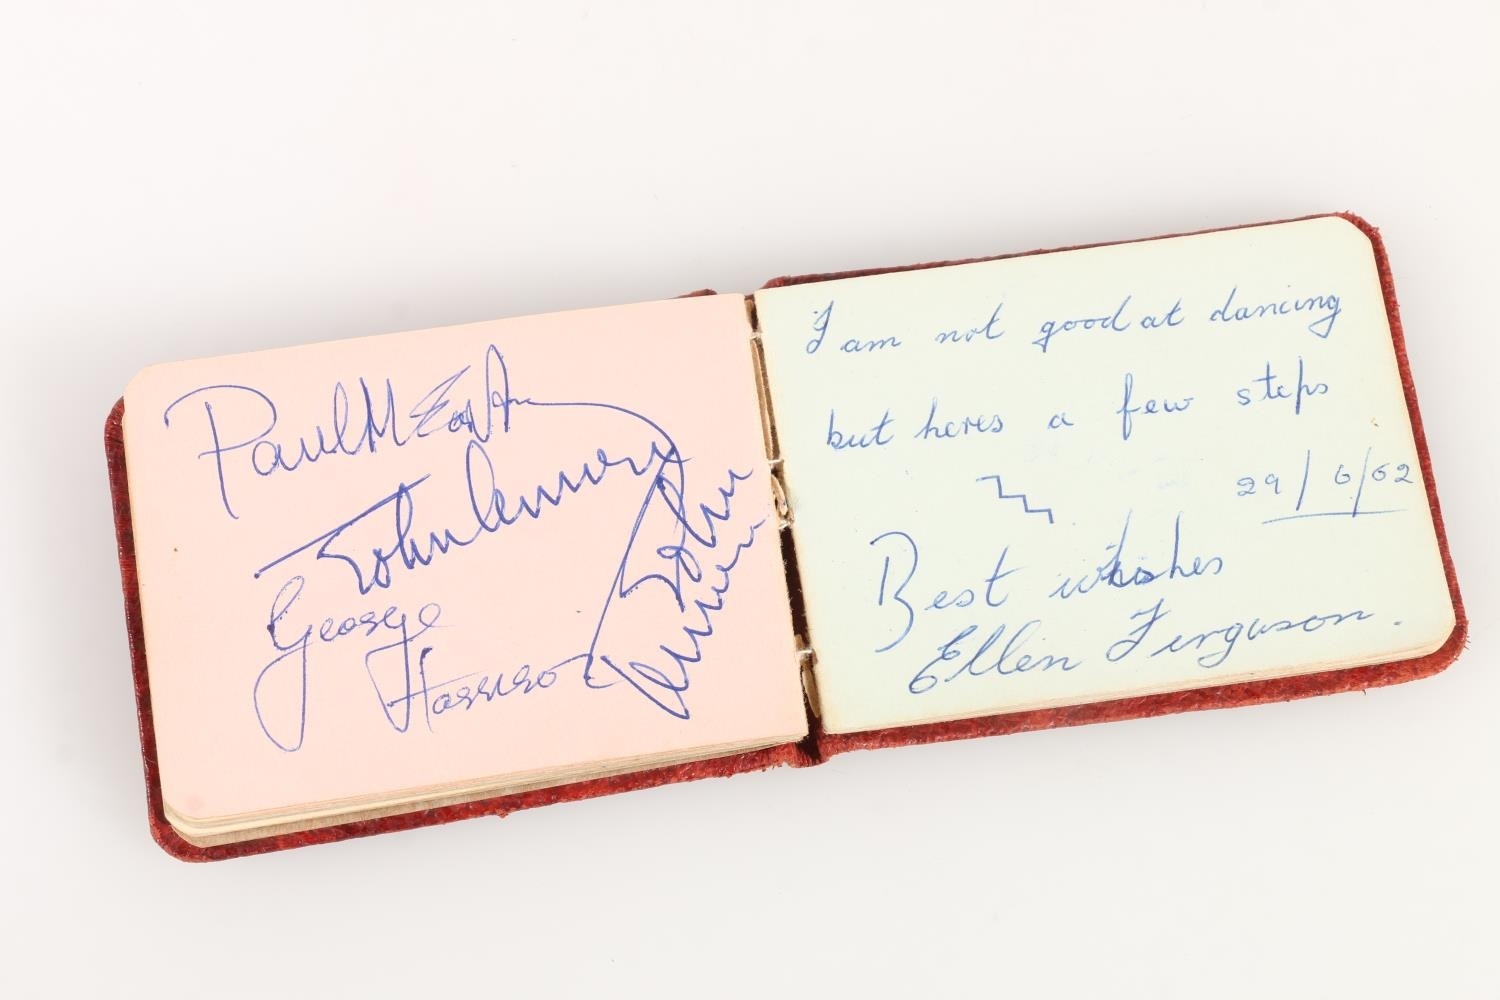 Paul McCartney
John Lennon
George
Harrison
John
Lennon
I am not good at dancing
but heres a few steps
29/6/62
Best whishes
Ellen Ferguson.